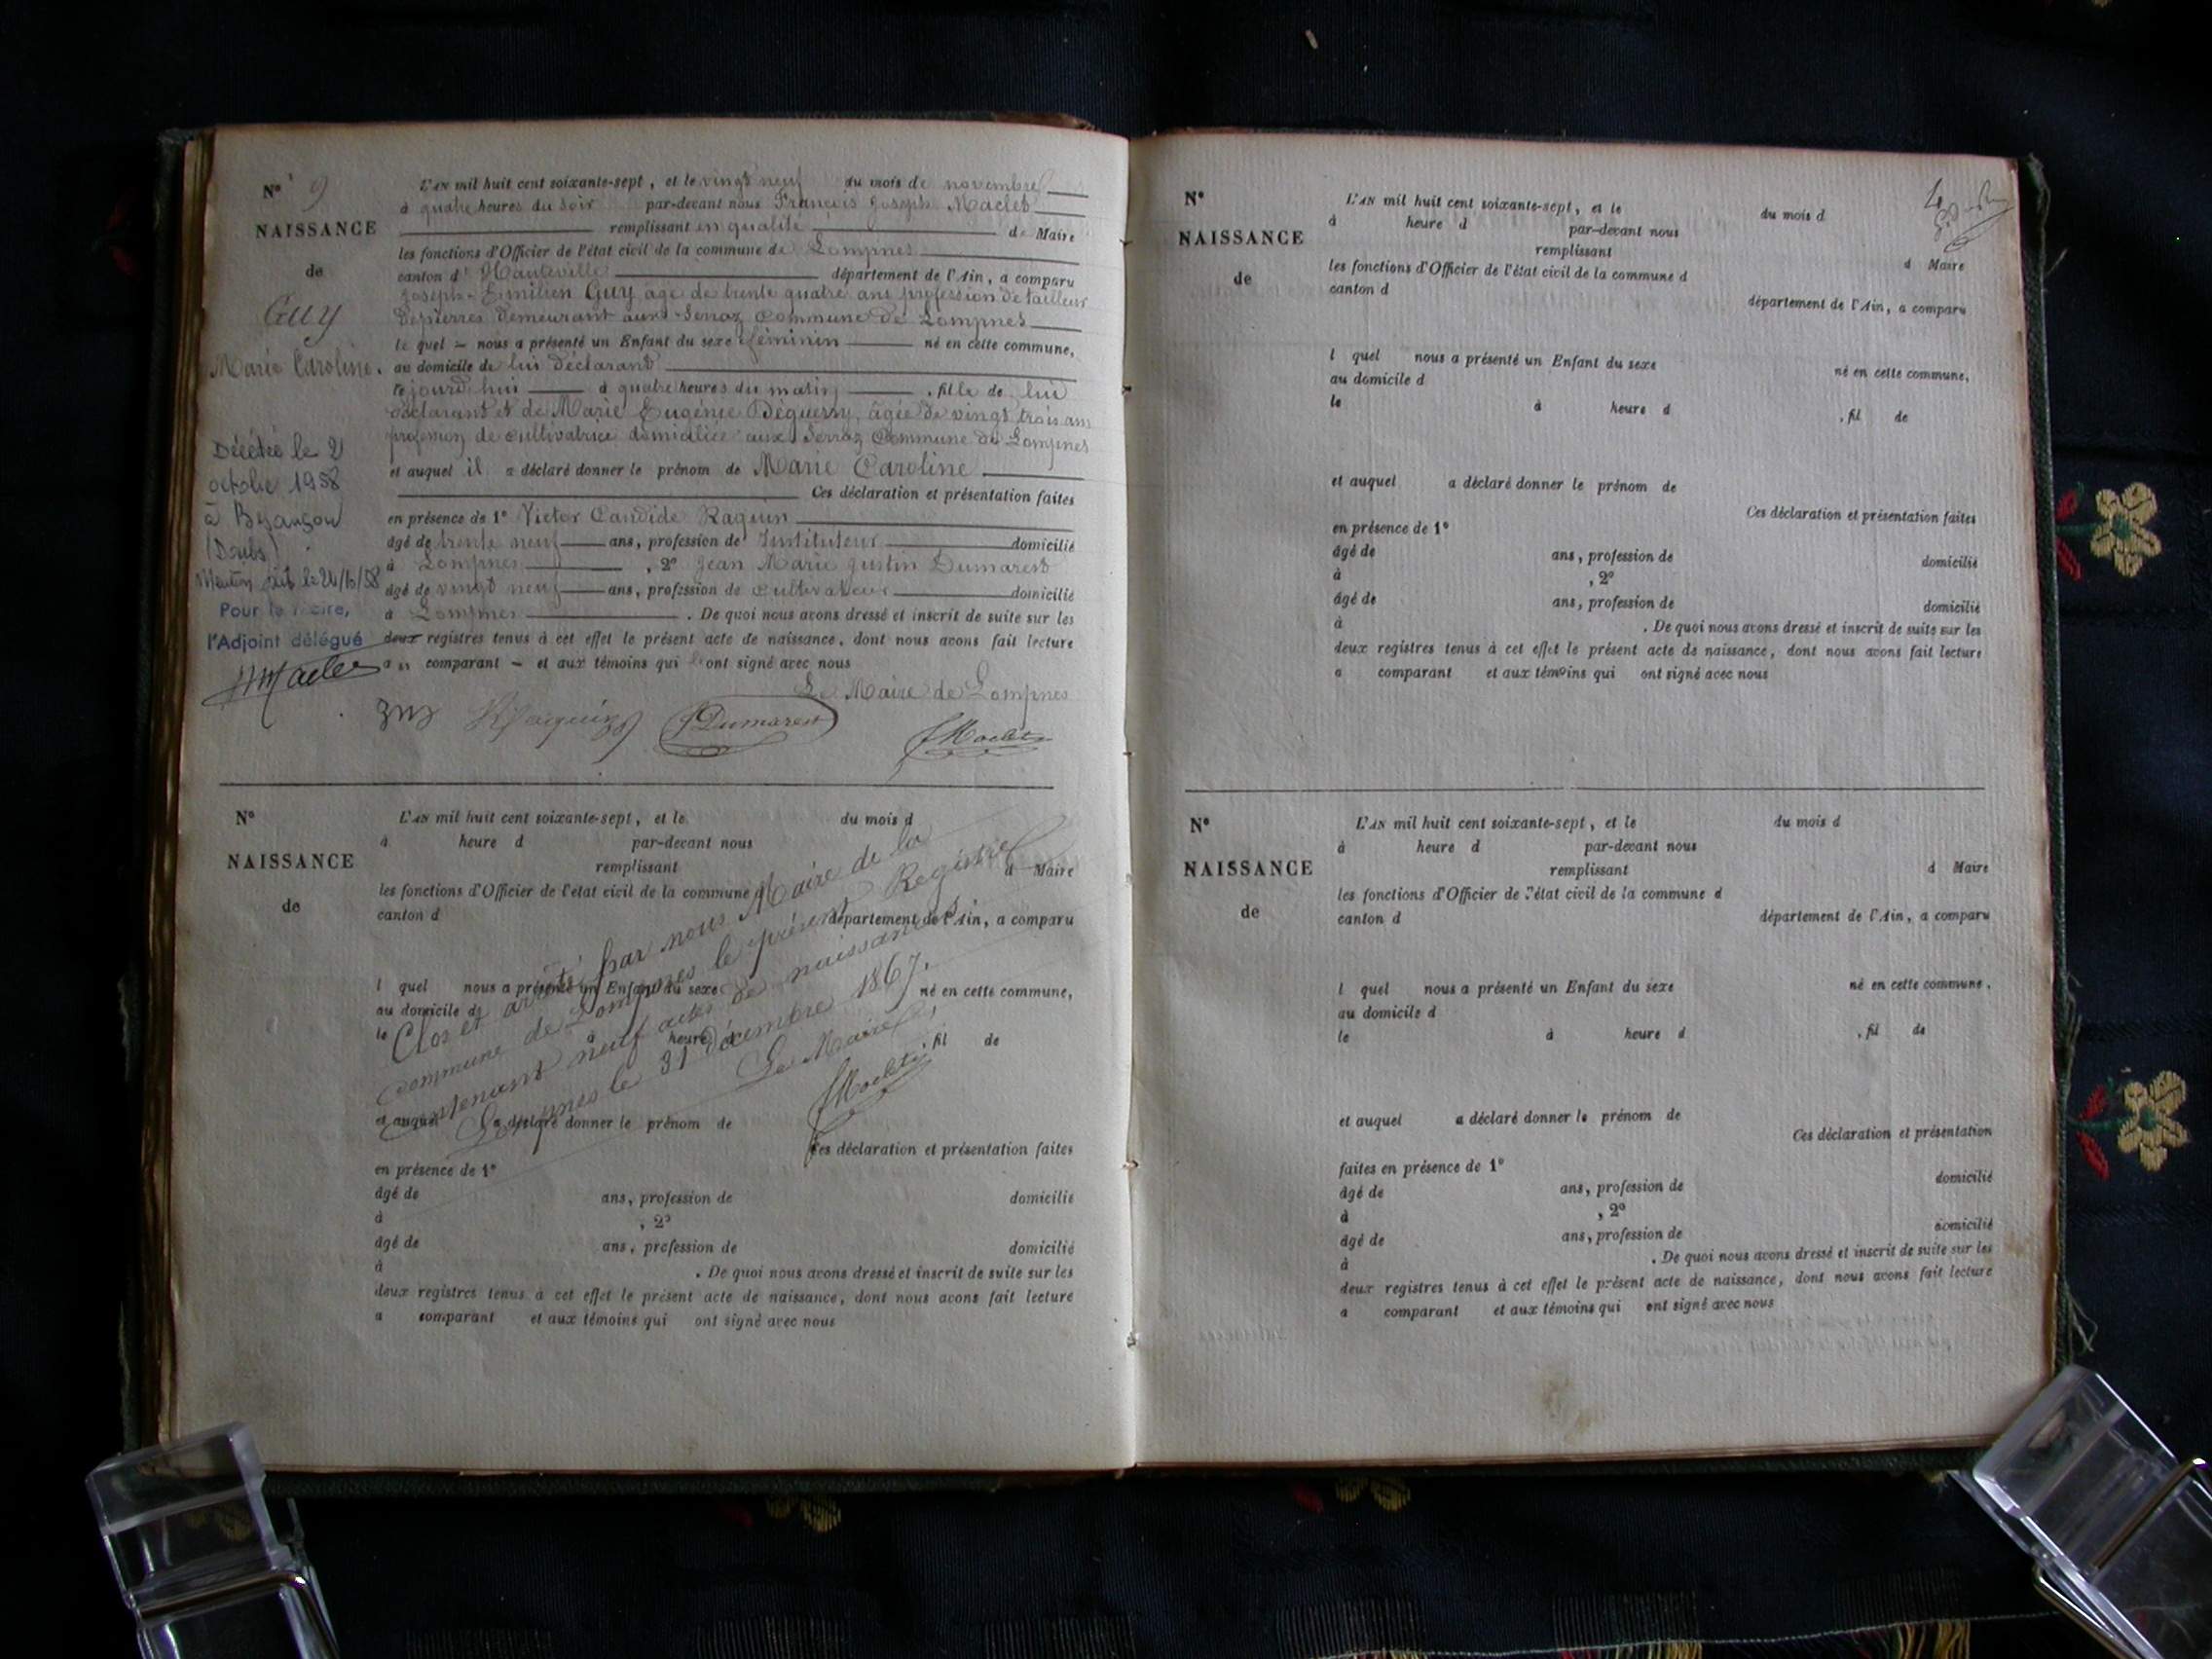 N° 9
NAISSANCE
de
Guy
Marie Caroline.
Décédée le 2
octobre 1958
à Besançon
(Doubs)
Mention
Pour le Maire,
l'Adjoint délégué
L'AN mil huit cent soixante-sept, et le vingt neuf du mois de novembre
à quatre heures du soir par-devant nous François Joseph Maclet
remplissant en qualité de Maire
les fonctions d'Officier de l'état civil de la commune de Lompnes
canton d'Hauteville département de l'Ain, a comparu
Joseph-Emilien Guy âgé de trente quatre ans profession de tailleur
de pierres demeurant aux Serraz Commune de Lompnes
le quel nous a présenté un Enfant du sexe féminin né en cette commune,
au domicile de lui déclarant
cejourd'hui à quatre heures du matin, fille de lui
déclarant et de Marie Eugénie âgée de vingt trois ans
profession de cultivatrice domiciliée aux Serraz Commune de Lompnes
et auquel il a déclaré donner le prénom de Marie Caroline
Ces déclaration et présentation faites
en présence de 1° Victor Candide Raquin
âgé de trente neuf ans, profession de Instituteur domicilié
à Lompnes, 2° Jean Marie Justin Dumarest
âgé de vingt neuf ans, profession de cultivateur domicilié
à Lompnes. De quoi nous avons dressé et inscrit de suite sur les
deux registres tenus à cet effet le présent acte de naissance, dont nous avons fait lecture
au comparant et aux témoins qui ont signé avec nous
Le Maire de Lompnes
Guy Raquin Dumarest Maclet
N°
NAISSANCE
de
L'AN mil huit cent soixante-sept, et le du mois d
à heure d par-devant nous
remplissant d Maire
les fonctions d'Officier de l'état civil de la commune d
canton d département de l'Ain, a comparu
l quel nous a présenté un Enfant du sexe né en cette commune,
au domicile d
le à heure d, fil de
et auquel a déclaré donner le prénom de
Ces déclaration et présentation faites
en présence de 1°
âgé de ans, profession de domicilié
à , 2°
âgé de ans, profession de domicilié
à . De quoi nous avons dressé et inscrit de suite sur les
deux registres tenus à cet effet le présent acte de naissance, dont nous avons fait lecture
a comparant et aux témoins qui ont signé avec nous
Clos et arrêté par nous Maire de la
Commune de Lompnes le présent Registre
contenant neuf actes de naissances
Lompnes le 31 décembre 1867.
Le Maire,
Maclet
N°
NAISSANCE
de
L'AN mil huit cent soixante-sept, et le du mois d
à heure d par-devant nous
remplissant d Maire
les fonctions d'Officier de l'état civil de la commune d
canton d département de l'Ain, a comparu
l quel nous a présenté un Enfant du sexe né en cette commune,
au domicile d
le à heure d , fil de
et auquel a déclaré donner le prénom de
Ces déclaration et présentation faites
en présence de 1°
âgé de ans, profession de domicilié
à , 2°
âgé de ans, profession de domicilié
à . De quoi nous avons dressé et inscrit de suite sur les
deux registres tenus à cet effet le présent acte de naissance, dont nous avons fait lecture
a comparant et aux témoins qui ont signé avec nous
N°
NAISSANCE
de
L'AN mil huit cent soixante-sept, et le du mois d
à heure d par-devant nous
remplissant d Maire
les fonctions d'Officier de l'état civil de la commune d
canton d département de l'Ain, a comparu
l quel nous a présenté un Enfant du sexe né en cette commune,
au domicile d
le à heure d , fil de
et auquel a déclaré donner le prénom de
Ces déclaration et présentation
faites en présence de 1° domicilié
âgé de ans, profession de
à , 2° domicilié
âgé de ans, profession de
à . De quoi nous avons dressé et inscrit de suite sur les
deux registres tenus à cet effet le présent acte de naissance, dont nous avons fait lecture
a comparant et aux témoins qui ont signé avec nous